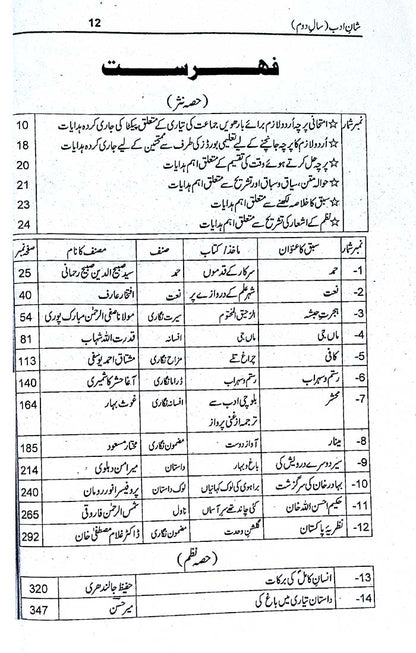 شانِ ادب (سال دوم) 12
فہرست
(حصہ نثر)
نمبر شمار ☆ امتحانی پرچہ اُردو لازم برائے بارھویں جماعت کی تیاری کے متعلق پیکٹا کی جاری کردہ ہدایات 10
☆ اُردو لازم کا پرچہ جانچنے کے لیے تعلیمی بورڈز کی طرف سے ممتحن کے لیے جاری کردہ ہدایات 18
☆ پرچہ حل کرتے ہوئے وقت کی تقسیم کے متعلق اہم ہدایات 20
☆ حوالہ متن، سیاق و سباق اور تشریح سے متعلق اہم ہدایات 21
☆ سبق کا خلاصہ لکھنے سے متعلق اہم ہدایات 23
☆ نظم کے اشعار کی تشریح سے متعلق اہم ہدایات 24
نمبر شمار سبق کا عنوان ماخذ/ کتاب صنف مصنف کا نام صفحہ نمبر
1- حمد سرکار کے قدموں حمد سید صبیح الدین صبیح رحمانی 25
2- نعت شہرِ علم کے دروازے پر نعت افتخار عارف 40
3- ہجرتِ حبشہ الرحیق المختوم سیرت نگاری مولانا صفی الرحمٰن مبارک پوری 54
4- ماں جی ماں جی افسانہ قدرت اللہ شہاب 81
5- کافی چراغ تلے مزاح نگاری مشتاق احمد یوسفی 113
6- رستم و سہراب رستم و سہراب ڈراما نگاری آغا حشر کاشمیری 140
7- محشر بلوچی ادب سے افسانہ نگاری غوث بہار 164
ترجمہ از غنی پرواز
8- مینار آوازِ دوست مضمون نگاری مختار مسعود 185
9- سیر دوسرے درویش کی باغ و بہار داستان میر امن دہلوی 214
10- بہادر خان کی سرگزشت براہوی کی لوک کہانیاں لوک داستان پروفیسر انور رومان 240
11- حکیم احسن اللہ خان کئی چاند تھے سرِ آسماں ناول شمس الرحمٰن فاروقی 265
12- نظریۂ پاکستان گلشنِ وحدت مضمون نگاری ڈاکٹر غلام مصطفیٰ خان 292
(حصہ نظم)
13- انسانِ کامل کی برکات حفیظ جالندھری 320
14- داستان تیاری میں باغ کی میر حسن 347